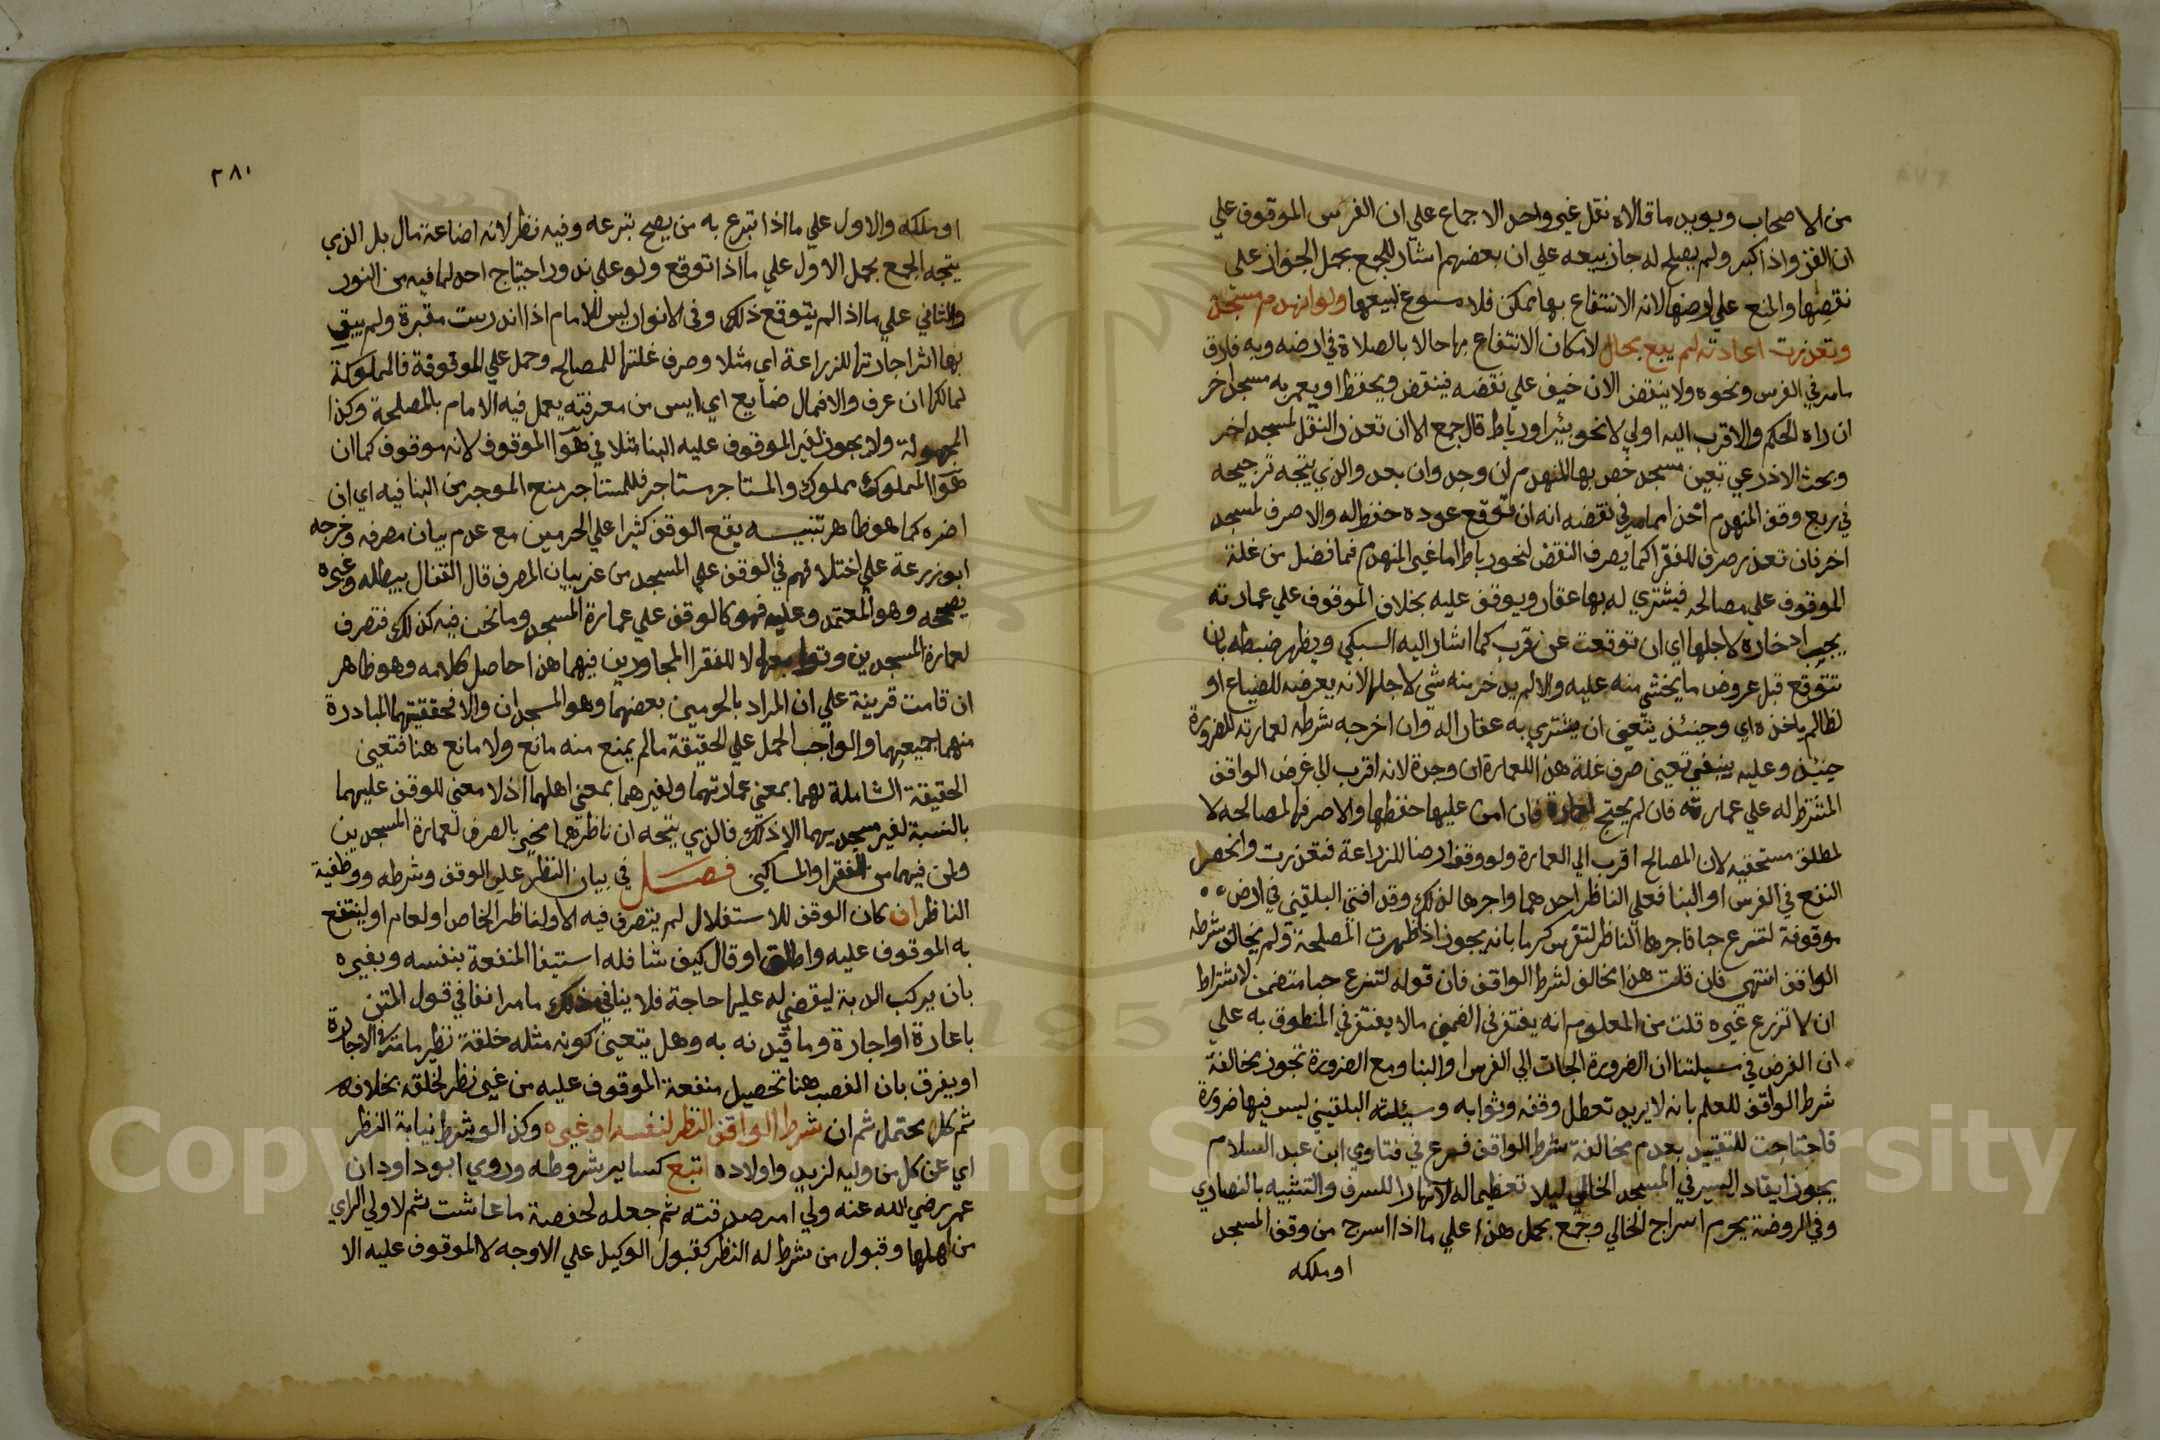 من الاصحاب ويويد ما قالاه نقل غير واحد الاجماع علي ان الفرس الموقوف علي
ان الغزو اذا كبر ولم يصلح له جاز بيعه علي ان بعضهم اشار للجمع بحمل الجواز علي
نقضها والمنع علي ارضها لانه الانتفاع بها ممكن فلا مسوغ لبيعها ولو انهدم مسجد
وتعذرت اعادته لم يبع بحال لامكان الانتفاع بها حالا بالصلاة في ارضه وبه فارق
ما مر في الفرس ونحوه ولا ينقض الا ان خيف علي نقضه فينقض ويحفظ او يعمر به مسجد اخر
ان راه الحاكم والاقرب اليه اولي لا نحو بئر او رباط قال جمع الا ان تعذر النقل لمسجد اخر
وبحث الاذرعي تعين مسجد خص بها المنهدم ان وجد وان بعد والذي يتجه ترجيحه
في ريع وقف المنهدم اخذا مما مر في نقضه انه ان توقع عوده حفظ له والا صرف لمسجد
اخر فان تعذر صرف للفقرا كما يصرف النقض لنحو رباط اما غير المنهدم فما فضل من غلة
الموقوف علي مصالحه فيشتري له بها عقار ويوقف عليه بخلاف الموقوف علي عمارته
يجب ادخاره لاجلها اي ان توقعت عن قرب كما اشار اليه السبكي ويظهر ضبطه بان
تتوقع قبل عروض ما يخشي منه عليه والا لم يدخر منه شي لاجلها لانه يعرضه للضياع او
لظالم ياخذه اي وحينئذ يتعين ان يشتري به عقار له وان اخرجه شرطه لعمارته للضرورة
حينئذ وعليه ينبغي تعين صرف غلة هذا للعمارة ان وجدة لانه اقرب الي غرض الواقف
المشترط له علي عمارته فان لم يحتج لعمارة فان امن عليها حفظها والا صرفها لمصالحه لا
لمطلق مستحقيه لان المصالح اقرب الي العمارة ولو وقف ارضا للزراعة فتعذرت وانحصر
النفع في الغرس او البنا فعلي الناظر احدهما واجرها لذلك وقد افتي البلقيني في ارض
موقوفة لتزرع حبا فاجرها الناظر لتغرس كرما بانه يجوز اذا ظهرت المصلحة ولم يخالف شرط
الواقف انتهي فان قلت هذا مخالف لشرط الواقف فان قوله لتزرع حبا متضمن لاشتراط
ان لا تزرع غيره قلت من المعلوم انه يغتفر في الضمن ما لا يغتفر في المنطوق به علي
ان الفرض في مسيلتنا ان الضرورة الجات الي الغرس او البنا ومع الضرورة تجوز مخالفة
شرط الواقف للعلم بانه لا يريد تعطل وقفه وثوابه ومسيلة البلقيني ليس فيها ضرورة
فاحتاجت للتقييد بعدم مخالفة شرط الواقف فرع في فتاوي ابن عبد السلام
يجوز ايقاد اليسير في المسجد الخالي ليلا تعظيما له لا نهارا للسرف والتشبيه بالنصاري
وفي الروضة يحرم اسراج الخالي وجمع بحمل هذا علي ما اذا اسرج من وقف المسجد
او ملكه
٢٨١
او ملكه والاول علي ما اذا تبرع به من يصح تبرعه وفيه نظر لانه اضاعة مال بل الذي
يتجه الجمع بحمل الاول علي ما اذا توقع ولو علي ندور احتياج احد لما فيه من النور
والثاني علي ما اذا لم يتوقع ذلك وفي الانوار ليس للامام اذا اندرست مقبرة ولم يبق
بها اثر اجارتها للزراعة اي مثلا وصرف غلتها للمصالح وحمل علي الموقوفة فالمملوكة
لمالكها ان عرف والا فمال ضايع اي ايس من معرفته يعمل فيه الامام بالمصلحة وكذا
المجهولة ولا يجوز لغير الموقوف عليه البنا مثلا في هوآ الموقوف لانه موقوف كما ان
هوآ المملوك مملوك والمستاجر مستاجر فللمستاجر منع الموجر من البنا فيه اي ان
اضره كما هو ظاهر تنبيه يقع الوقف كثيرا علي الحرمين مع عدم بيان مصرفه وخرجه
ابو زرعة علي اختلافهم في الوقف علي المسجد من غير بيان المصرف قال القفال يبطله وغيره
يصححه وهو المعتمد وعليه فهو كالوقف علي عمارة المسجد وما نحن فيه كذلك فتصرف
لعمارة المسجدين وتوابعها لا للفقرا المجاورين فيهما هذا حاصل كلامه وهو ظاهر
ان قامت قرينة علي ان المراد بالحرمين بعضهما وهو المسجدان والا فحقيقتهما المبادرة
منهما جميعهما والواجب الحمل علي الحقيقة ما لم يمنع منه مانع ولا مانع هنا فتعين
الحقيقة الشاملة لهما بمعني عمارتهما ولغيرهما بمعني اهلهما اذ لا معني للوقف عليهما
بالنسبة لغير مسجديهما الا ذلك فالذي يتجه ان ناظرهما مخير بالصرف لعمارة المسجدين
ولمن فيهما من الفقرا والمساكين فصل في بيان النظر علي الوقف وشرطه ووظيفة
الناظر ان كان الوقف للاستغلال لم يتصرف فيه الا ولناظر الخاص او لعام او لينتفع
به الموقوف عليه واطلق او قال كيف شا فله استيفا المنفعة بنفسه وبغيره
بان يركب الدبة ليقضي له عليها حاجة فلا ينافي ذلك ما مر انفا في قول المتن
باعارة او اجارة وما قيدنه به وهل يتعين كونه مثله خلقة نظير ما مر في الاجارة
او يفرق بان الغصب هنا تحصيل منفعة الموقوف عليه من غير نظر لخلقه بخلافه
ثم كل محتمل ثم ان شرط الواقف النظر لنفسه او غيره وكذا لو شرط نيابة النظر
اي عن كل من وليه لزيد واولاده اتبع كساير شروطه وروي ابو داود ان
عمر رضي الله عنه ولي امر صدقته ثم جعله لحفصة ما عاشت ثم لاولي الراي
من اهلها وقبول من شرط له النظر كقبول الوكيل علي الاوجه لا الموقوف عليه الا
Copyright © King Saud University
1957